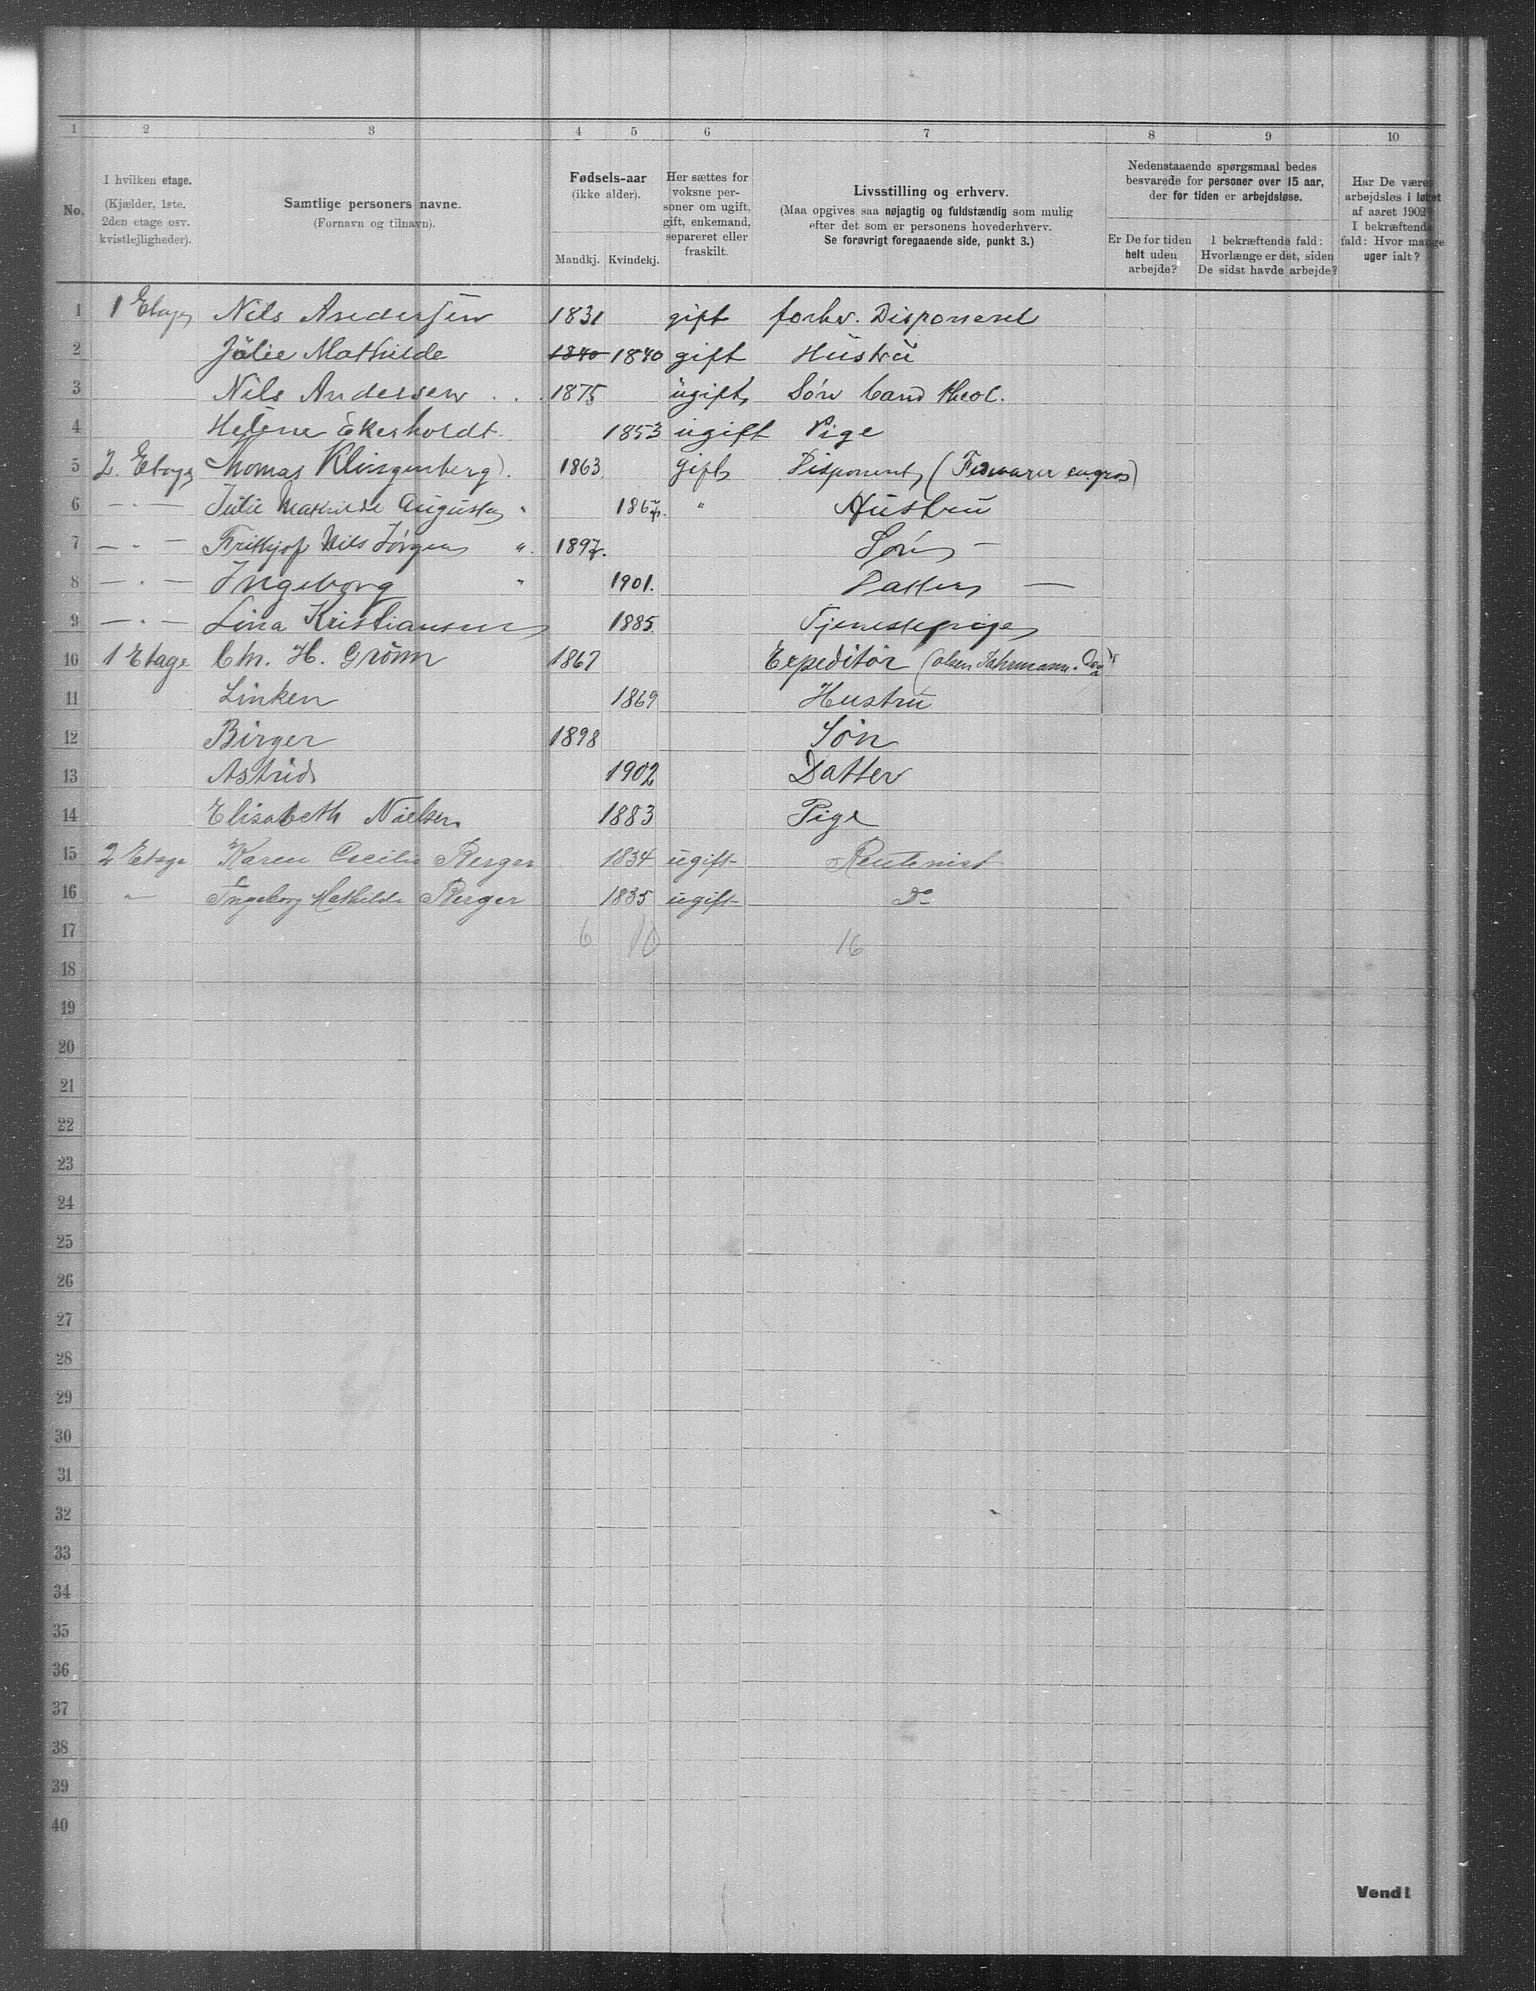 1 2 3 4 5 6 7 8 9 10
No.
I hvilken etage. (Kjælder, 1ste, 2den etage osv. kvistlejligheder).
Samtlige personers navne. (Fornavn og tilnavn).
Fødsels-aar (ikke alder).
Mandkj. Kvindekj.
Her sættes for voksne personer om ugift, gift, enkemand, separeret eller fraskilt.
Livsstilling og erhverv.
(Maa opgives saa nøjagtig og fuldstændig som mulig efter det som er personens hovederhverv.
Se forøvrigt foregaaende side, punkt 3.)
Nedenstaaende spørgsmaal bedes besvarede for personer over 15 aar, der for tiden er arbejdsløse.
Er De for tiden helt uden arbejde?
I bekræftende fald: Hvorlænge er det, siden De sidst havde arbejde?
Har De været arbejdsløs i løbet af aaret 1902? I bekræftende fald: Hvor mange uger ialt?
1 1 Etage Nils Andersen 1831 gift forhv. Disponent
2 Julie Mathilde 1840 1840 gift Hustru
3 Nils Andersen . . . 1875 ugift Søn Cand theol.
4 Helene Ekerholdt. 1853 ugift Pige
5 2 Etage Thomas Klingenberg. 1863 gift Disponent (engros)
6 — . — Julie Mathilde Augusta " "  Hustru
7 — . — Fritjof Nils Jørgen ". 1897. Søn —
8 — . — Ingeborg " 1901. Datter —
9 — . — Lina Kristiansen 1885 Tjenestepige
10 1 Etage Chr. H. Grønn 1867 Expeditør (olsen
11 Linken 1869 Hustru
12 Birger 1898 Søn
13 Astrid 1902 Datter
14 Elisabeth Nielsen 1883 Pige
15 2 Etage Karen Cecilie Berger 1834 ugift Rentenist
16 — Ingeborg Mathilde Berger 1835 ugift Do
17 6 10 16
18
19
20
21
22
23
24
25
26
27
28
29
30
31
32
33
34
35
36
37
38
39
40
Vend!